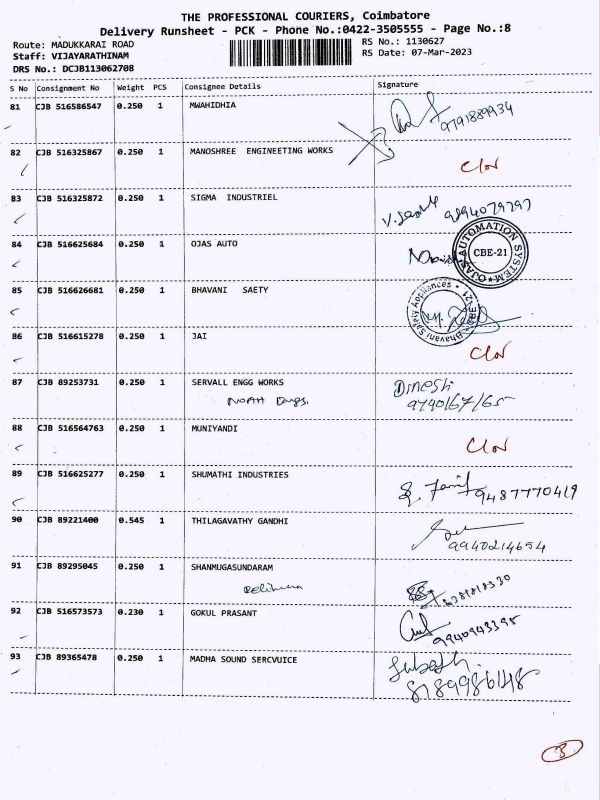 THE PROFESSIONAL COURIERS, Coimbatore
Delivery Runsheet - PCK - Phone No.:0422-3505555 - Page No.:8
Route: MADUKKARAI ROAD
RS No.: 1130627
Staff: VIJAYARATHINAM
RS Date: 07-Mar-2023
DRS No.: DCJB113062708
S No Consignment No Weight PCS Consignee Details Signature
81 CJB 516586547 0.250 1 MWAHIDHIA
9791889934
82 CJB 516325867 0.250 1 MANOSHREE ENGINEETING WORKS
83 CJB 516325872 0.250 1 SIGMA INDUSTRIEL
9894079797
84 CJB 516625684 0.250 1 OJAS AUTO
OJAS AUTOMATION SYSTEM
CBE-21
85 CJB 516626681 0.250 1 BHAVANI SAETY
Bhavani Safety Appliances
86 CJB 516615278 0.250 1 JAI
87 CJB 89253731 0.250 1 SERVALL ENGG WORKS Dinesh
9740167165
88 CJB 516564763 0.250 1 MUNIYANDI
89 CJB 516625277 0.250 1 SHUMATHI INDUSTRIES
9487770419
90 CJB 89221400 0.545 1 THILAGAVATHY GANDHI
9940214654
91 CJB 89295045 0.250 1 SHANMUGASUNDARAM
92 CJB 516573573 0.230 1 GOKUL PRASANT
9940943395
93 CJB 89365478 0.250 1 MADHA SOUND SERCVUICE
8189986148
8